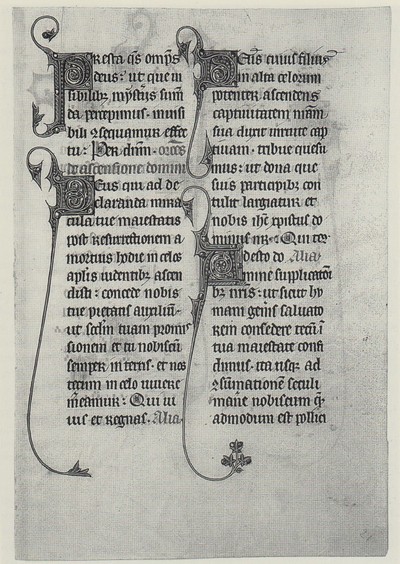 Presta qs omps
deus: ut que ui
sibilibz mysteriis sum
da percepimus. inuisi
bili 2sequamur effe
tu: Per dnm. oroēs
de ascensione domini
Deus qui ad de
claranda mira
cula tue maiestatis
post resurrectionem a
mortuis hodie in celos
aplis uidentibz ascen
disti: concede nobis
tue pietatis auxiliū.
ut scdm tuam promis
sionem et tu nobiscū
semper in terris. et nos
tecum in celo uiuere
mereamur: Qui ui
uis et regnas. Alia.
Deus cuius filius
in alta celorum
potenter ascendens
captiuitatem nrām
sua duxit uirtute cap
tiuam. tribue quesu
mus: ut dona que
suis participibz con
tulit largiatur et
nobis ihc xpistus do
minus nr. Qui tec
Adesto do Alia
mine supplicatoi
bz nris: ut sicut hu
mani genis saluato
rem consedere tecū i
tua maiestate confi
dimus. ita usqz ad
2sūmationē seculi
manē nobiscum q
admodum est pollici